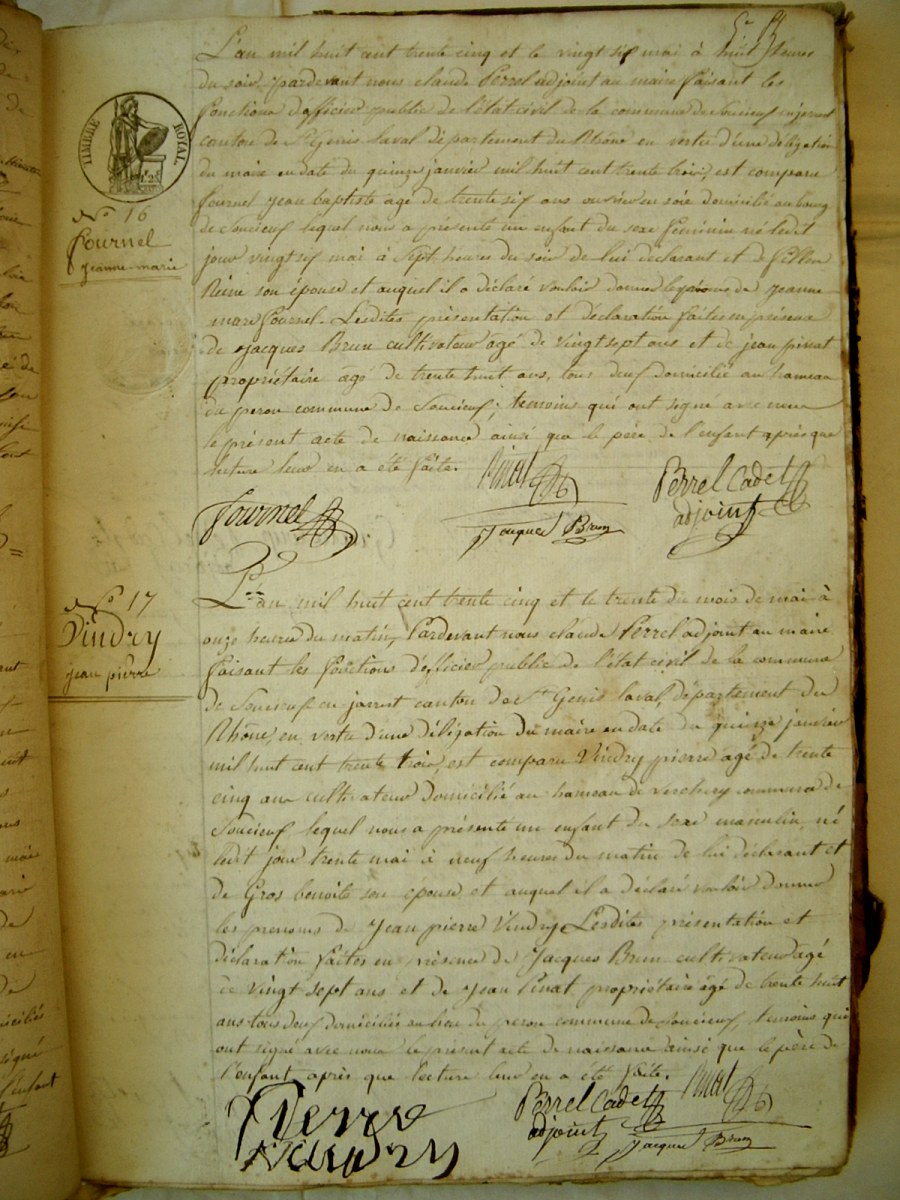 L'an mil huit cent trente cinq et le vingt six mai à huit heures
du soir, pardevant nous claude Perrel adjoint au maire faisant les
fonctions d'officier public de l'état civil de la commune de Soucieu en jarrest
canton de St Genis laval département du Rhône en vertu d'une délégation
du maire en date du quinze janvier mil huit cent trente trois, est comparu
fournel jean baptiste âgé de trente six ans ouvrier en soie domicilié au bourg
de Soucieu lequel nous a présenté un enfant du sexe féminin né ledit
jour vingt six mai à Sept heures du soir de lui déclarant et de
Reine son épouse et auquel il a déclaré vouloir donner le prénoms de jeanne
marie fournel. Lesdites présentation et déclaration faites en présence
de jacques Brun cultivateur âgé de vingt sept ans et de jean pinat
propriétaire âgé de trente huit ans, tous deux domicilié au hameau
du peron commune de Soucieu, temoins qui ont signé avec nous
le présent acte de naissance ainsi que le père de l'enfant après que
lecture leur en a été faite.
TIMBRE ROYAL
No 16
fournel
jeanne-marie
Fournel
Pinat
Jacques Brun
Perrel Cadet
adjoint
No 17
Vindry
jean pierre
L'an mil huit cent trente cinq et le trente du mois de mai à
onze heures du matin, Pardevant nous claude Perrel adjoint au maire
faisant les fonctions d'officier public de l'état civil de la commune
de Soucieu en jarrest canton de St Genis laval, département du
Rhône, en vertu d'une délégation du maire en date du quinze janvier
mil huit cent trente trois, est comparu Vindry pierre âgé de trente
cinq ans cultivateur domicilié au hameau de verchery commune de
Soucieu lequel nous a présenté un enfant du sexe masculin né
ledit jour trente mai à neuf heures du matin de lui déclarant et
de Gros benoite son épouse et auquel il a déclaré vouloir donner
les prenoms de Jean pierre Vindry Lesdites présentation et
déclaration faites en présence de Jacques Brun cultivateur âgé
de vingt sept ans et de Jean Pinat propriétaire âgé de trente huit
ans tous deux domiciliés au lieu du peron commune de Soucieu, temoins qui
ont signé avec nous le présent acte de naissance ainsi que le père de
l'enfant après que lecture leur en a été faite.
Pierre
Vindry
Perrel Cadet
adjoint
Pinat
Jacques Brun